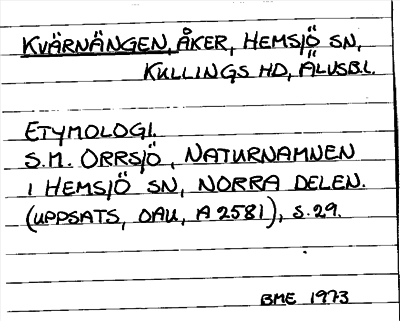 KVÄRNÄNGEN, ÅKER, HEMSJÖ SN,
KULLINGS HD, ÄLVSB.L.
ETYMOLOGI.
S.M. ORRSJÖ, NATURNAMNEN
I HEMSJÖ SN, NORRA DELEN.
(UPPSATS, OAU, A 2581), S. 29.
BME 1973